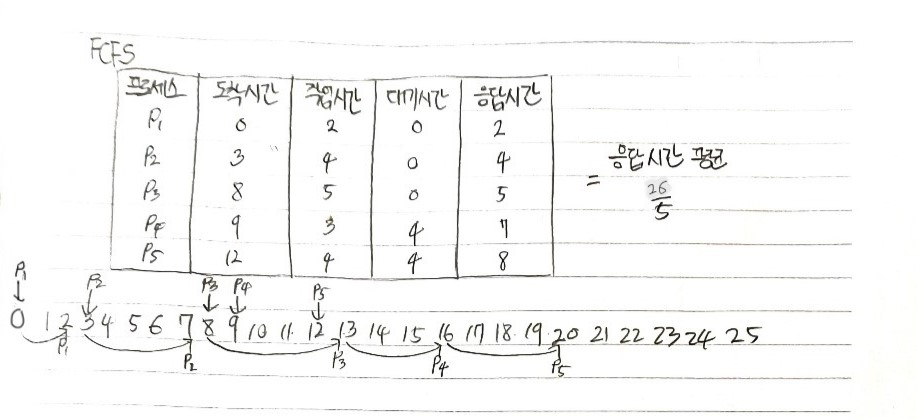 FCFS
프로세스 도착시간 작업시간 대기시간 응답시간
P1 0 2 0 2
P2 3 4 0 4
P3 8 5 0 5
P4 9 3 4 7
P5 12 4 4 8
= 응답시간 평균
26
5
P1 P2 P3 P4 P5
0 1 2 3 4 5 6 7 8 9 10 11 12 13 14 15 16 17 18 19 20 21 22 23 24 25
P1 P2 P3 P4 P5